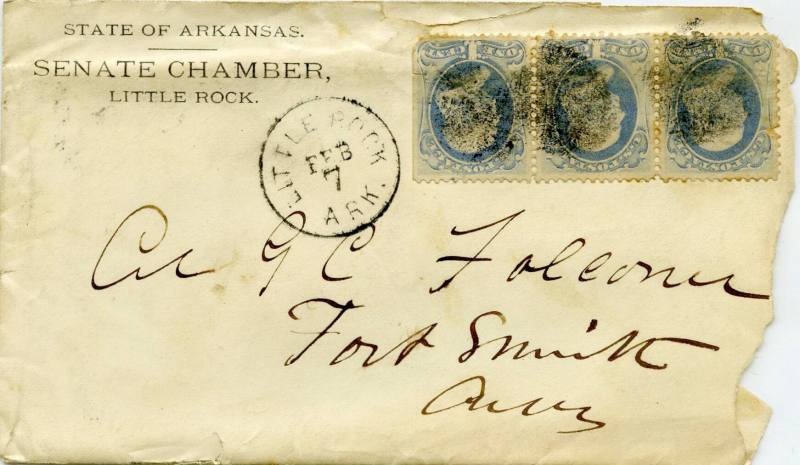 STATE OF ARKANSAS.
SENATE CHAMBER,
LITTLE ROCK.
LITTLE ROCK
FEB
7
ARK.
G C Falconer
Fort Smith